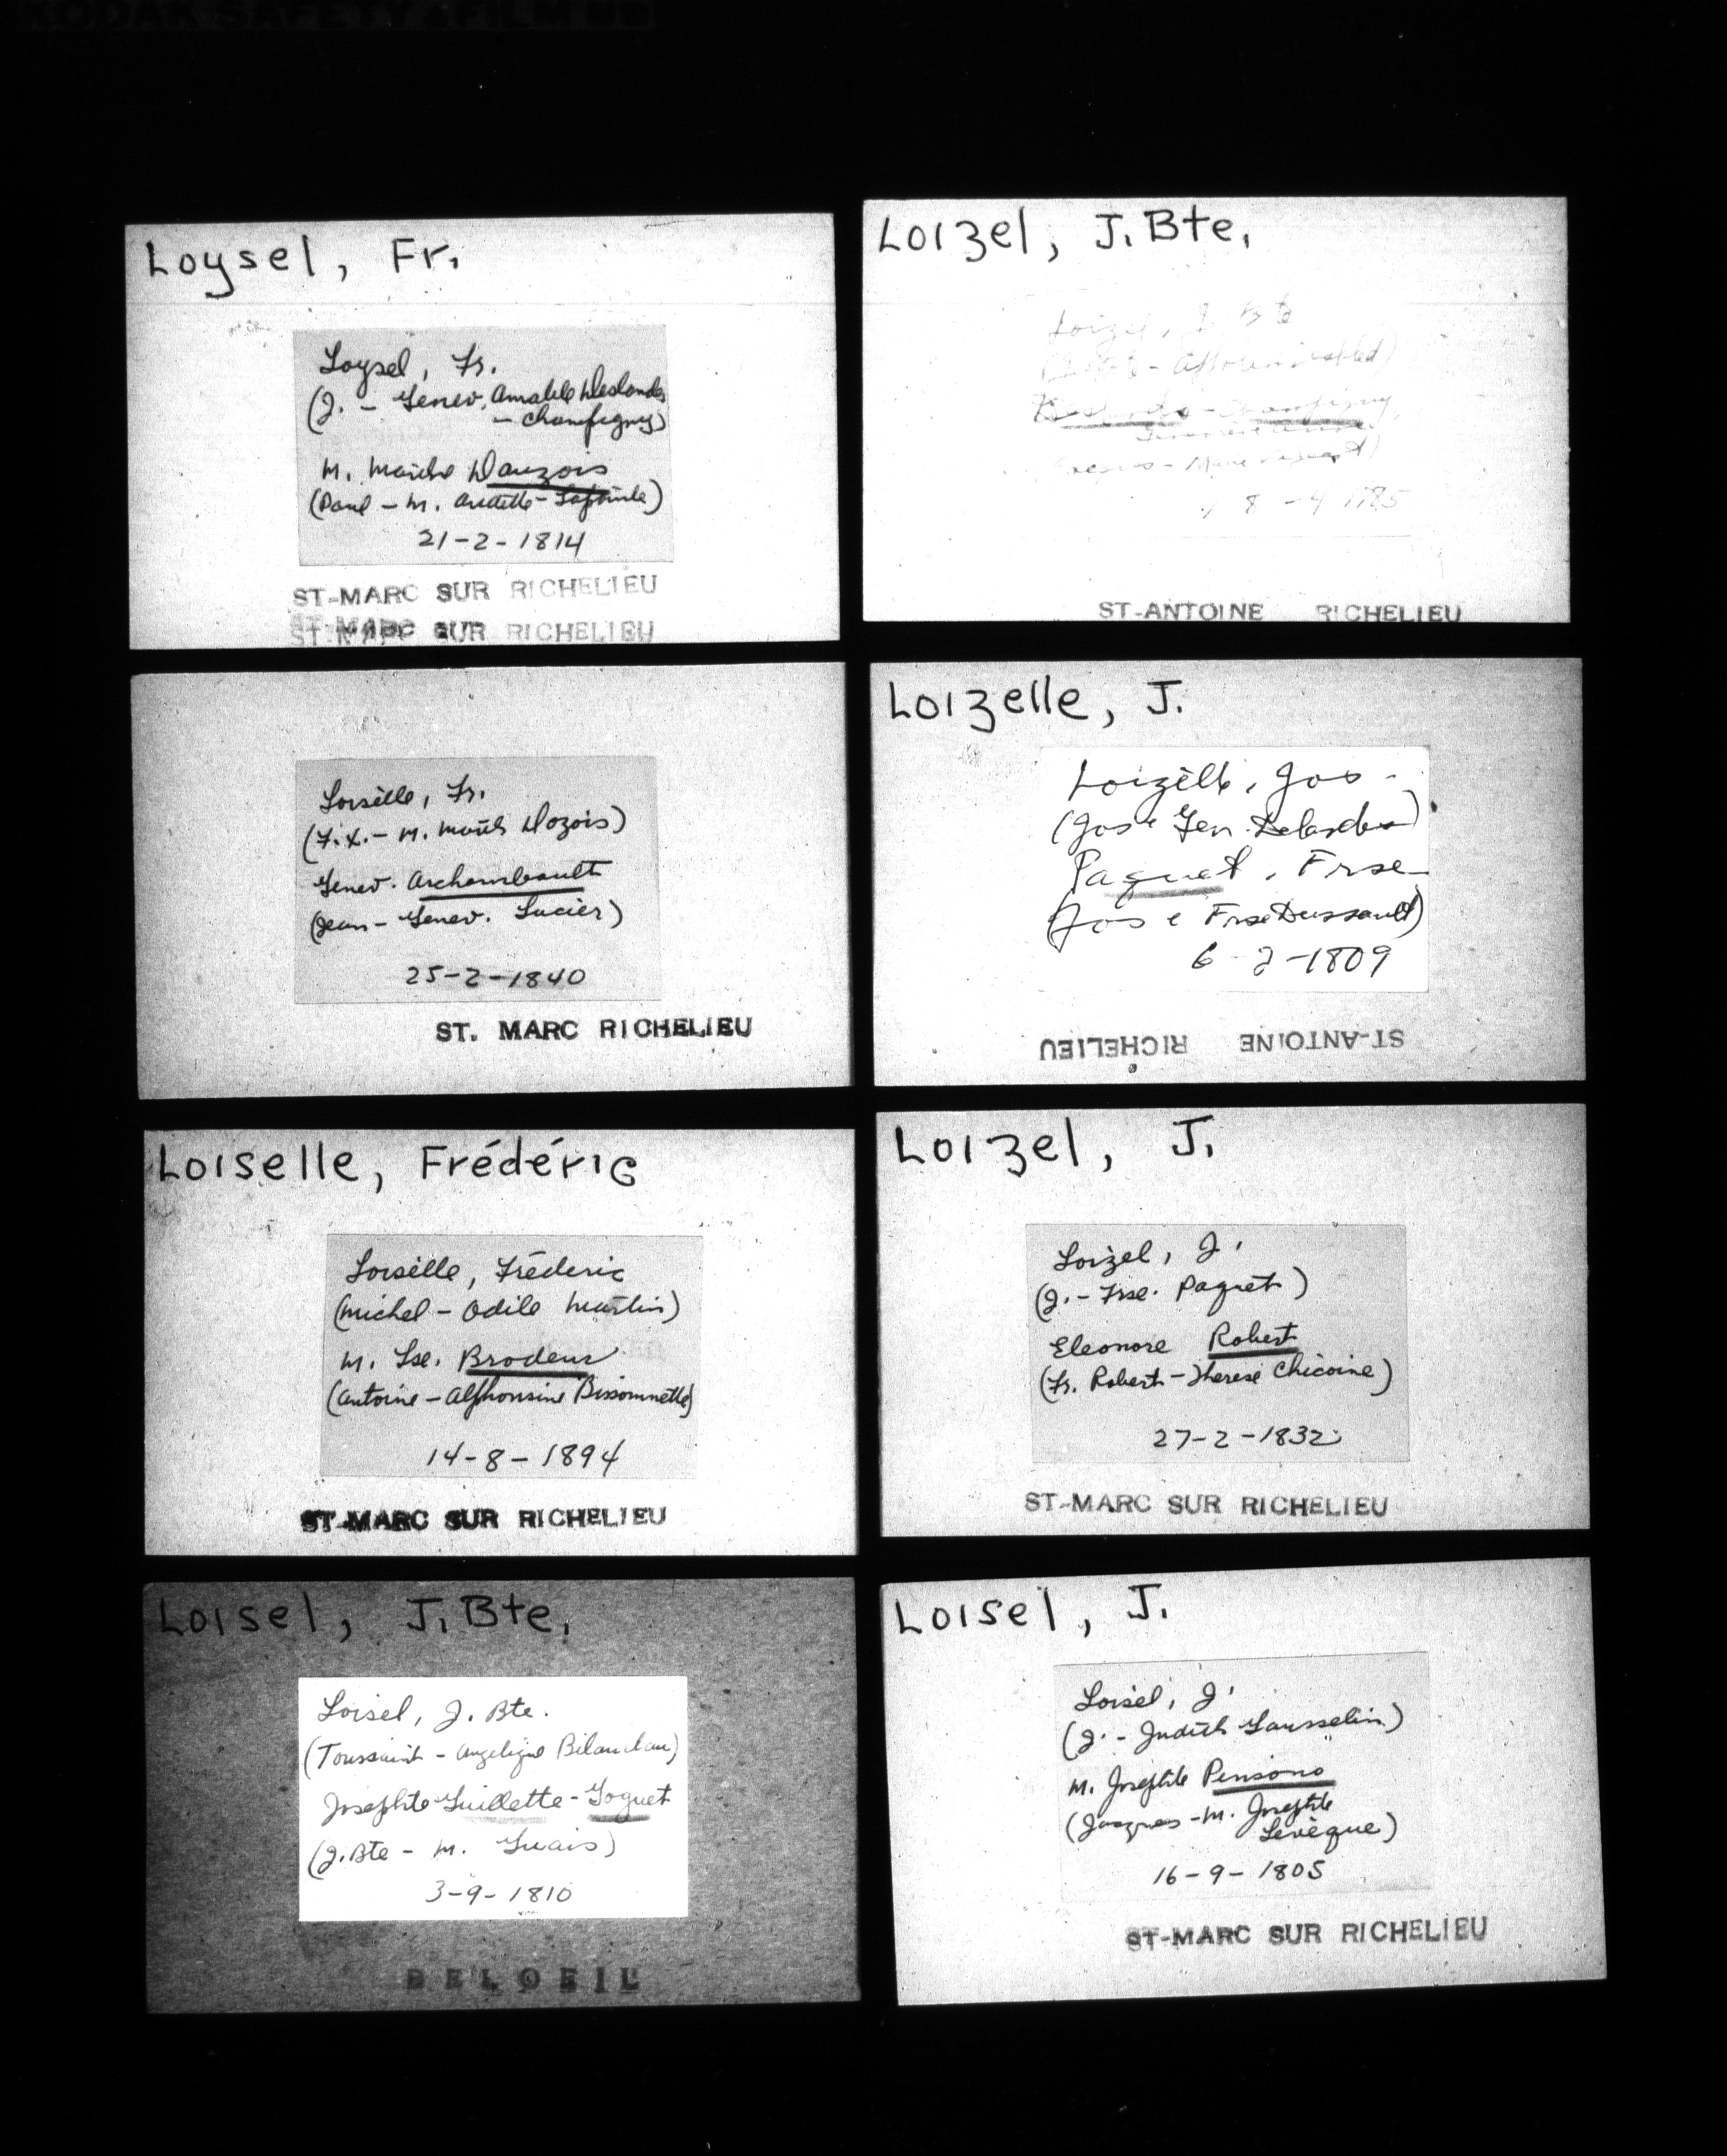 KODAK SAFETY FILM
Loysel, Fr.
Loysel, Fr.
(J. - Genev. Amable Deslandes
- Champigny)
M. Marthe Dauzois
(Paul - M. Audette - Lapointe)
21-2-1814
ST-MARC SUR RICHELIEU
ST-MARC SUR RICHELIEU
Loizel, J. Bte.
Loizel, J. Bte
Champigny
8-4 1785
ST-ANTOINE RICHELIEU
Loiselle, Fr.
(F.X. - M. Marthe Dozois)
Genev. Archambault
(Jean - Genev. Lucier)
25-2-1840
ST. MARC RICHELIEU
Loizelle, J.
Loizelle, Jos -
(Jos e Gen. Delandes)
Paquet, Frse
(Jos e Frse Dussault)
6-2-1809
ST-ANTOINE RICHELIEU
Loiselle, Frédéric
Loiselle, Fréderic
(Michel - Odile Martin)
M. Lse. Brodeur
(Antoine - Alphonsine Bissonnette)
14-8-1894
ST-MARC SUR RICHELIEU
Loizel, J.
Loizel, J.
(J. - Frse. Paquet)
Eleonore Robert
(Fr. Robert - Therese Chicoine)
27-2-1832
ST-MARC SUR RICHELIEU
Loisel, J. Bte.
Loisel, J. Bte.
(Toussaint - Angelique Bilaudau)
Josephte Guillette - Goguet
(J. Bte - M. Guais)
3-9-1810
BELOEIL
Loisel, J.
Loisel, J.
(J. - Judith Gausselin)
M. Josephte Pensono
(Jacques - M. Josephte
Levèque)
16-9-1805
ST-MARC SUR RICHELIEU